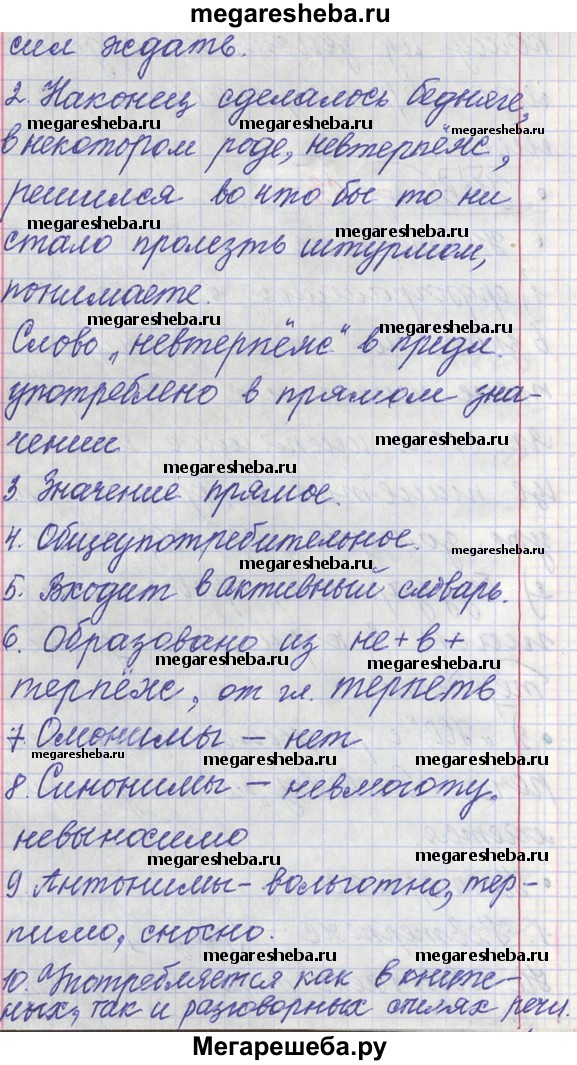 megaresheba.ru
сил ждать.
2. Наконец сделалось бедняге,
megaresheba.ru megaresheba.ru megaresheba.ru
в некотором роде, невтерпёж,
решился во что бы то ни
megaresheba.ru megaresheba.ru
стало пролезть штурмом,
понимаете.
megaresheba.ru megaresheba.ru
Слово „невтерпёж" в предл.
употреблено в прямом зна-
megaresheba.ru
чении
megaresheba.ru
3. Значение прямое.
4. Общеупотребительное.
megaresheba.ru megaresheba.ru
5. Входит в активный словарь.
megaresheba.ru
6. Образовано из не+в+
megaresheba.ru megaresheba.ru
терпёж, от гл. терпеть
7. Омонимы – нет
megaresheba.ru megaresheba.ru megaresheba.ru
8. Синонимы – невмоготу,
невыносимо
megaresheba.ru megaresheba.ru
9 Антонимы – вольготно, тер-
пимо, сносно.
megaresheba.ru megaresheba.ru
10. Употребляется как в книж-
ных, так и разговорных стилях речи.
megaresheba.ru megaresheba.ru
Мегарешеба.ру